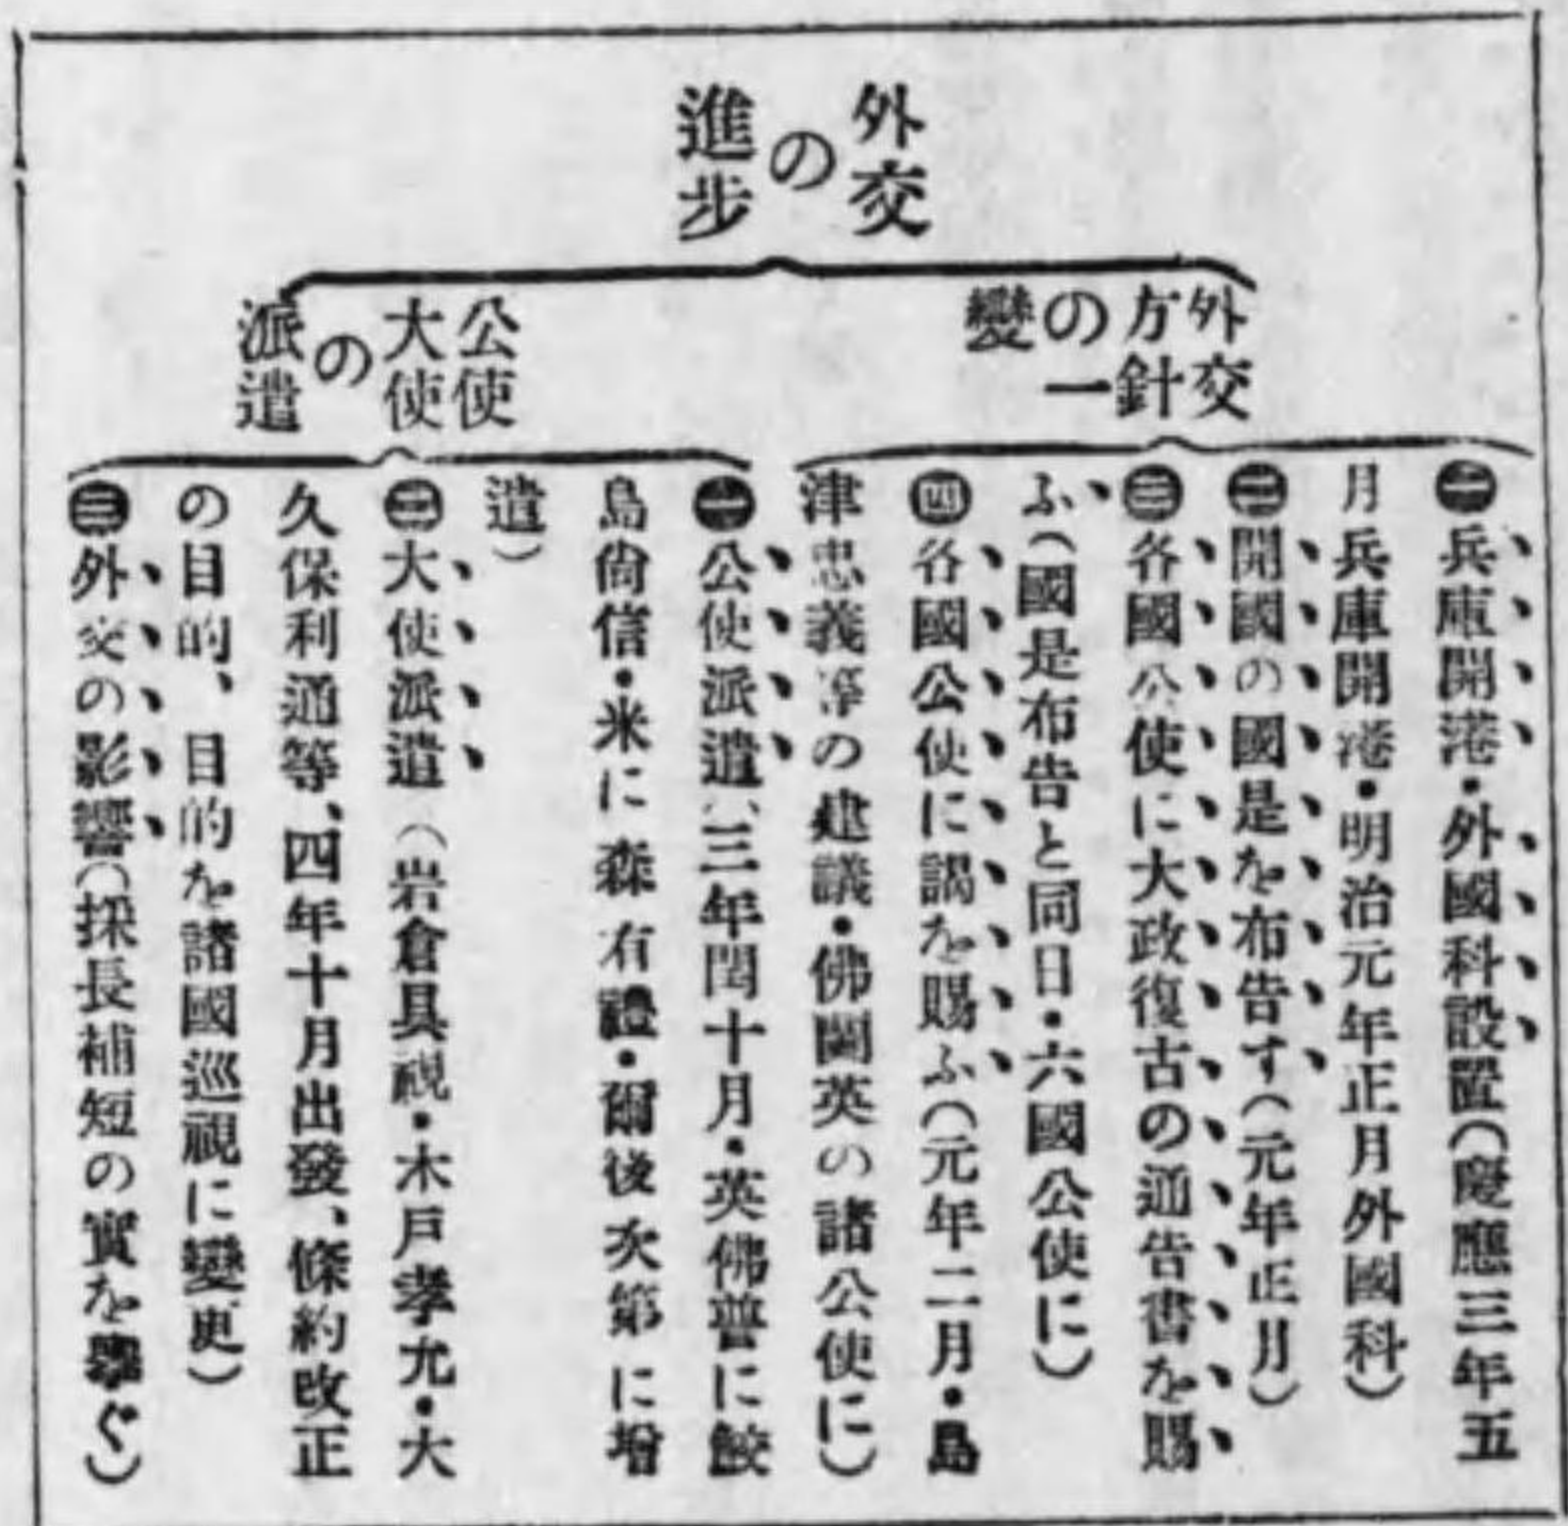 外交
の
進步
外交
方針
の一
變
㊀兵庫開港・外國科設置(慶應三年五
月兵庫開港・明治元年正月外國科)
㊁開國の國是を布告す(元年正月)
㊂各國公使に大政復古の通告書を賜
ふ(國是布告と同日・六國公使に)
㊃各國公使に謁を賜ふ(元年二月・島
津忠義等の建議・佛蘭英の諸公使に)
公使
大使
の
派遣
㊀公使派遣(三年閏十月・英佛普に鮫
島尙信・米に森有禮・爾後次第に增
遣)
㊁大使派遣(岩倉具視・木戶孝允・大
久保利通等、四年十月出發、條約改正
の目的、目的を諸國巡視に變更)
㊂外交の影響(採長補短の實を擧ぐ)